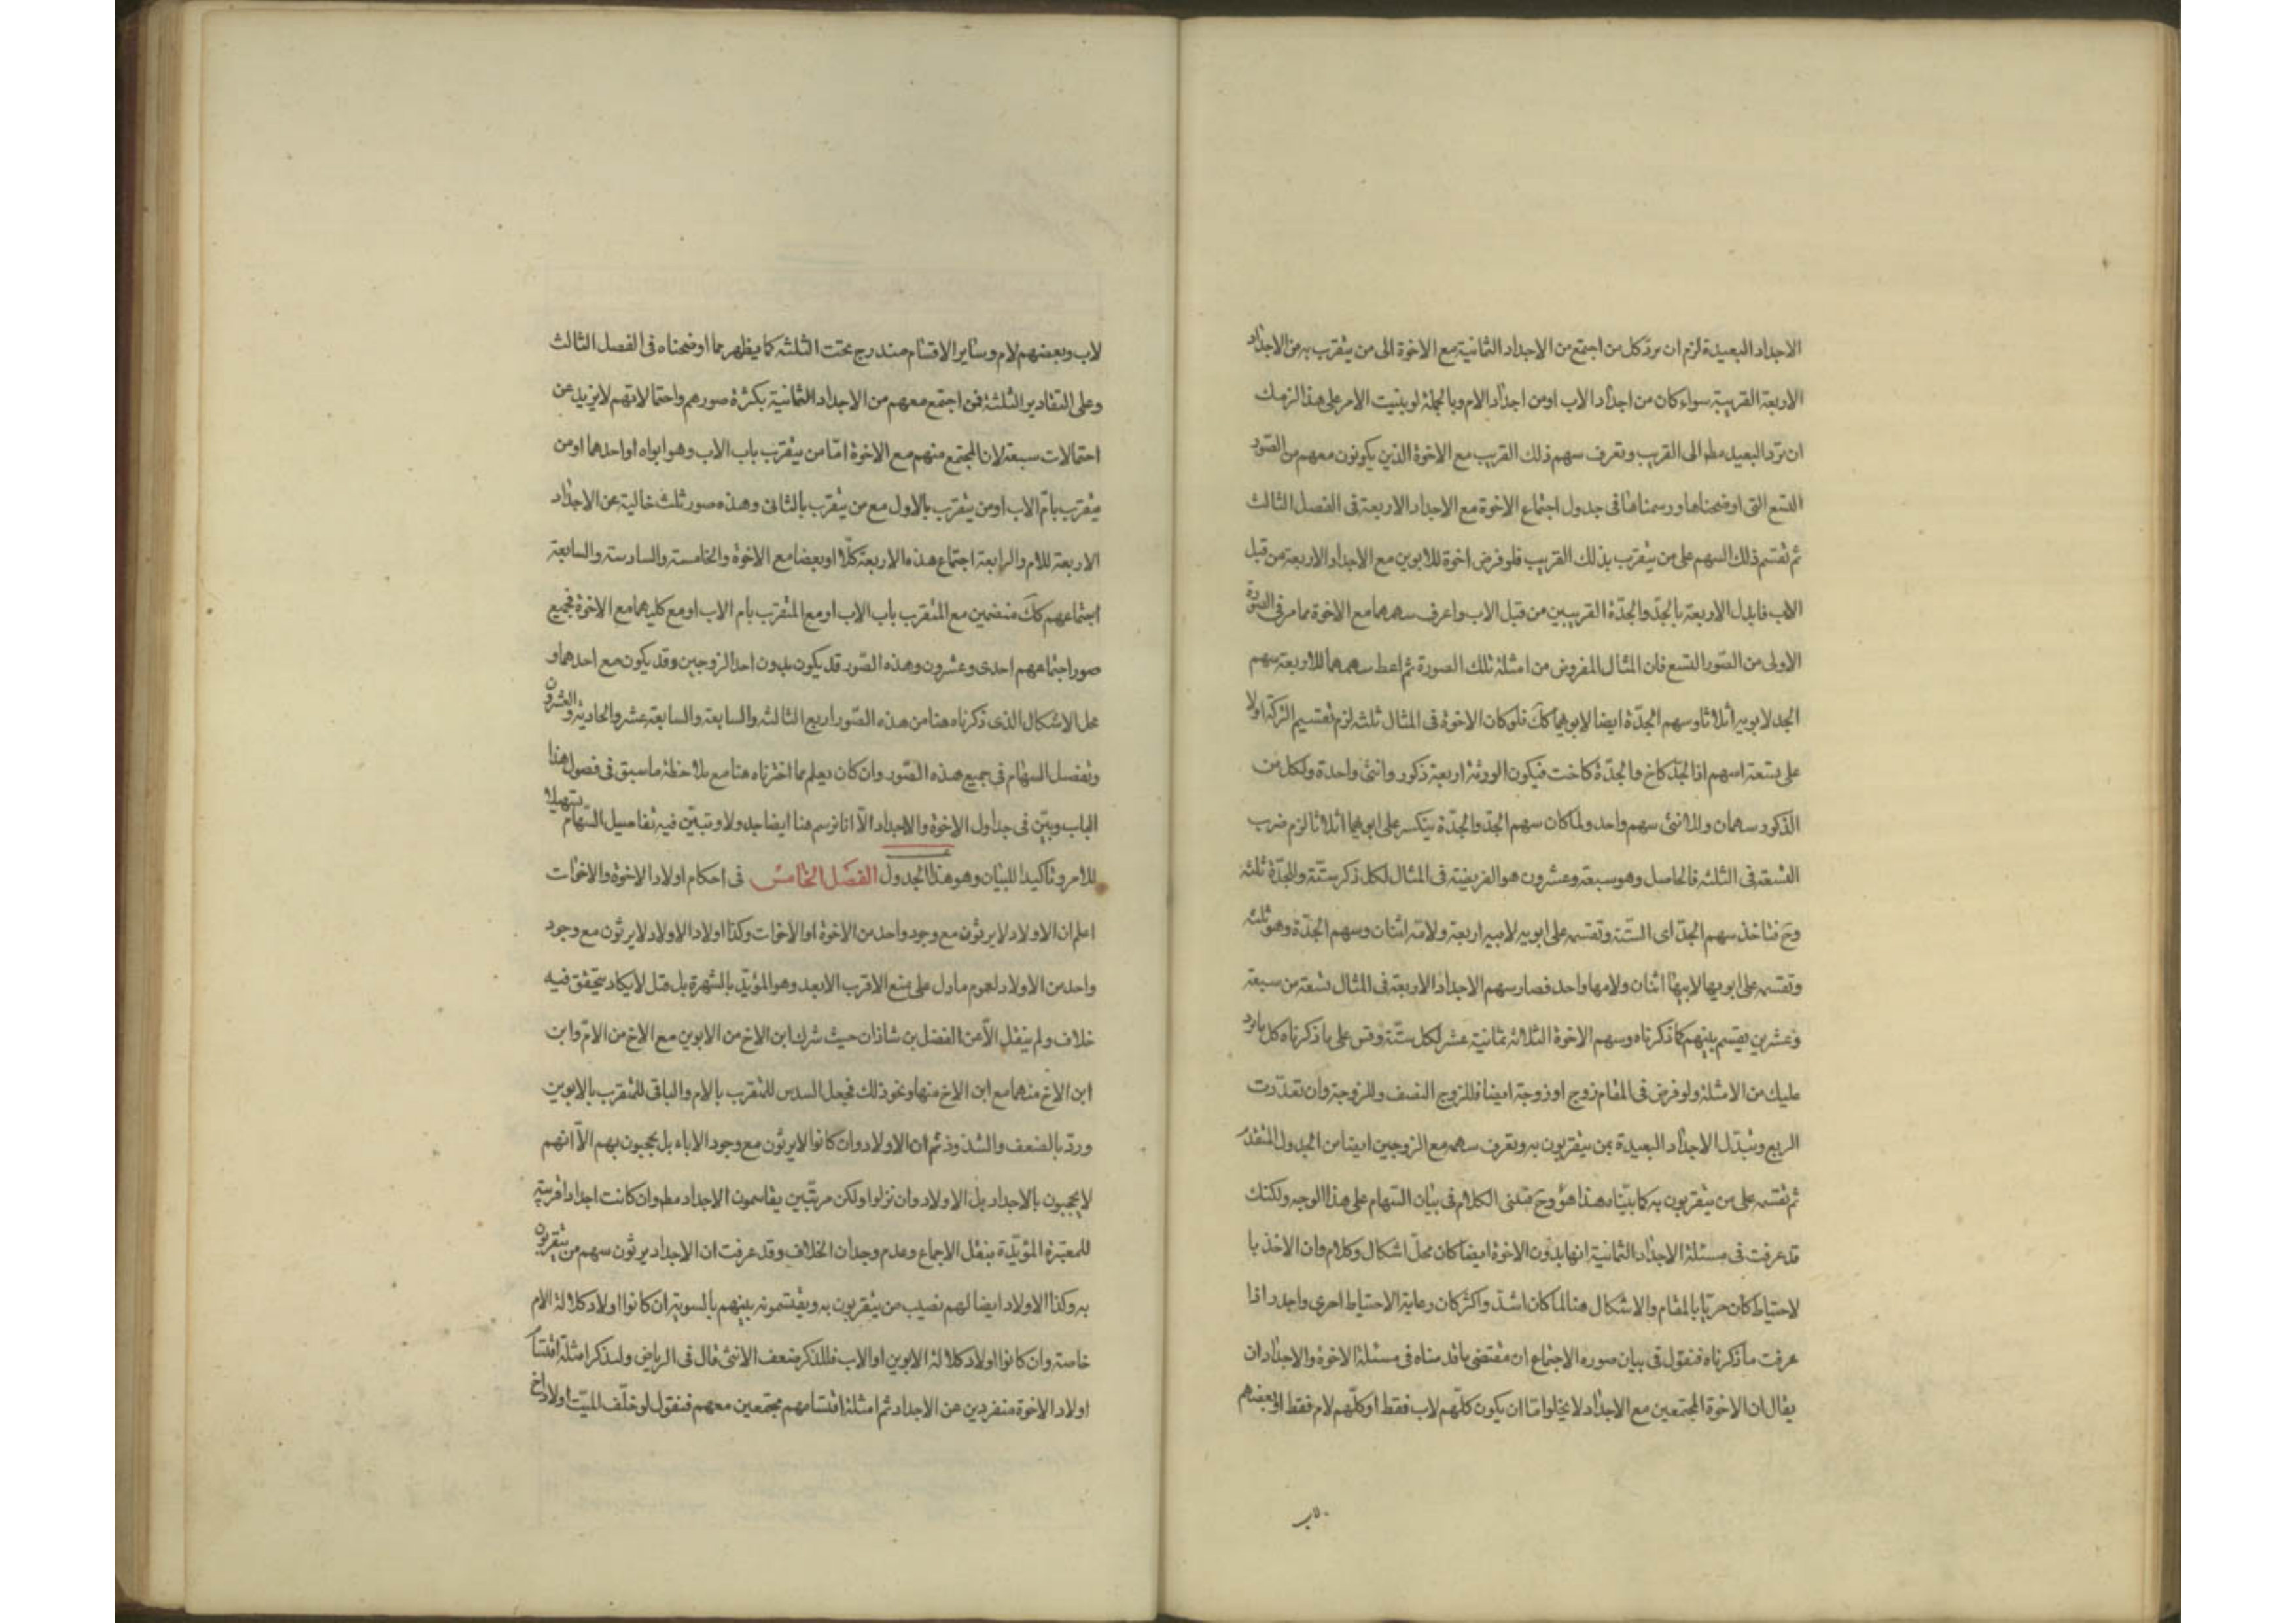 الاجداد البعيدة لزم ان يردّ كل من اجتمع من الاجداد الثمانية مع الاخوة الى من يتقرب به من الاجداد
الاربعة القريبة سواء كان من اجداد الاب او من اجداد الام وبالجملة لو بنيت الامر على هذا لزمك
ان تردّ البعيد مط الى القريب وتعرف سهم ذلك القريب مع الاخوة الذين يكونون معهم من الصّور
التسع التى اوضحناها ورسمناها فى جدول اجتماع الاخوة مع الاجداد الاربعة فى الفصل الثالث
ثم تقسم ذلك السهم على من يتقرب بذلك القريب فلو فرض اخوة للابوين مع الاجداد الاربعة من قبل
الاب فابدل الاربعة بالجدّ والجدّة القريبين من قبل الاب واعرف سهمهما مع الاخوة مما مر فى الصورة
الاولى من الصّور التسع فان المثال المفروض من امثلة تلك الصورة ثم اعط سهمهما للاربعة سهم
الجد لابويه اثلاثا وسهم الجدّة ايضا لابويهما كك فلو كان الاخوة فى المثال ثلثة لزم تقسيم التركة اولا
على تسعة اسهم اذ الجدّ كاخ والجدّة كاخت فيكون الورثة اربعة ذكور وانثى واحدة ولكل من
الذكور سهمان وللانثى سهم واحد ولما كان سهم الجدّ والجدّة ينكسر على ابويهما اثلاثا لزم ضرب
التسعة فى الثلثة فالحاصل وهو سبعة وعشرون هو الفريضة فى المثال لكل ذكر ستّة وللجدّة ثلثة
وح فتاخذ سهم الجدّ اى الستّة وتقسمه على ابويه لابيه اربعة ولامّه اثنان وسهم الجدّة وهو ثلثة
وتقسمه على ابويها لابيها اثنان ولامها واحد فصار سهم الاجداد الاربعة فى المثال تسعة من سبعة
وعشرين يقسم بينهم كما ذكرناه وسهم الاخوة الثلاثة ثمانية عشر لكل ستّة وقس على ما ذكرناه كل ما يرد
عليك من الامثلة ولو فرض فى المقام زوج او زوجة ايضا فللزوج النصف وللزوجة وان تعدّدت
الربع وتبدّل الاجداد البعيدة بمن يتقربون به وتعرف سهمه مع الزوجين ايضا من الجدول المتقدم
ثم تقسمه على من يتقربون به كما بيّناه هذا هو وح الكلام فى بيان السّهام على هذا الوجه ولكنك
قد عرفت فى مسئلة الاجداد الثمانية انها بدون الاخوة ايضا كان محلّ اشكال وكلام وان الاخذ با
لاحتياط كان حريّا بالمقام والاشكال هنا لما كان اشدّ واكثر كان رعاية الاحتياط احرى واجدر اذا
عرفت ما ذكرناه فنقول فى بيان صوره الاجتماع ان مقتضى ما قدمناه فى مسئلة الاخوة والاجداد ان
يقال ان الاخوة المجتمعين مع الاجداد لا يخلو امّا ان يكون كلّهم لاب فقط او كلّهم لام فقط او بعضهم
لاب وبعضهم لام وساير الاقسام مندرج تحت الثلثة كما يظهر مما اوضحناه فى الفصل الثالث
وعلى التقادير الثلثة فمن اجتمع معهم من الاجداد الثمانية بكثرة صورهم واحتمالاتهم لا يزيد عن
احتمالات سبعة لان المجتمع منهم مع الاخوة امّا من يتقرب باب الاب وهو ابواه او احدهما او من
يتقرب بامّ الاب او من يتقرب بالاول مع من يتقرب بالثانى وهذه صور ثلث خالية عن الاجداد
الاربعة للام والرابعة اجتماع هذه الاربعة كلّا او بعضا مع الاخوة والخامسة والسادسة والسابعة
اجتماعهم كك منضمين مع المتقرب باب الاب او مع المتقرب بام الاب او مع كليهما مع الاخوة فجميع
صور اجتماعهم احدى وعشرون وهذه الصّور قد يكون بدون احد الزوجين وقد يكون مع احدهما و
محل الاشكال الذى ذكرناه هنا من هذه الصّور اربع الثالثة والسابعة والسابعة عشر والحادية والعشرون
وتفصل السهام فى جميع هذه الصّور وان كان يعلم مما اخترناه هنا مع ملاحظة ما سبق فى فصول هذا
الباب وبيّن فى جداول الاخوة والاجداد الّا انا نرسم هنا ايضا جدولا وتبيّن فيه تفاصيل السّهام تسهيلا
للامر وتأكيدا للبيان وهو هذا الجدول الفصل الخامس فى احكام اولاد الاخوة والاخوات
اعلم ان الاولاد لا يرثون مع وجود واحد من الاخوة او الاخوات وكذا اولاد الاولاد لا يرثون مع وجود
واحد من الاولاد لعموم ما دل على منع الاقرب الابعد وهو المؤيّد بالشهرة بل قيل لا يكاد يتحقق فيه
خلاف ولم ينقل الّا عن الفضل بن شاذان حيث شرك ابن الاخ من الابوين مع الاخ من الامّ وابن
ابن الاخ منهما مع ابن الاخ منها ونحو ذلك فجعل السدس للمتقرب بالام والباقى للمتقرب بالابوين
وردّ بالضعف والشذوذ ثم ان الاولاد وان كانوا لا يرثون مع وجود الاباء بل يحجبون بهم الّا انهم
لا يحجبون بالاجداد بل الاولاد وان نزلوا ولكن مرتّبين يقاسمون الاجداد مط وان كانت اجدادا قريبة
للمعتبرة المؤيّدة بنقل الاجماع وعدم وجدان الخلاف وقد عرفت ان الاجداد يرثون سهم من يتقربون
به وكذا الاولاد ايضا لهم نصيب من يتقربون به ويقتسمونه بينهم بالسوية ان كانوا اولاد كلالة الام
خاصة وان كانوا اولاد كلالة الابوين او الاب فللذكر ضعف الانثى قال فى الرياض ولنذكر امثلة اقتسام
اولاد الاخوة منفردين عن الاجداد ثم امثلة اقتسامهم مجتمعين معهم فنقول لو خلّف الميّت اولاد اخ